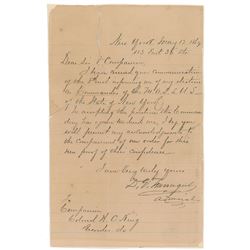 New York May 12 1869
113 East 36 St
Dear Sir & Companion
I have received your communication
of the 8th informing me of my election
as Commander of the M. O. L. L. U. S.
of the State of New York
In accepting the position the Commandery
has given me I beg you
will present my acknowledgments to
the Companions of our order for this
new proof of their confidence
I am very truly yours
D. G. Farragut
Admiral
Companion
Colonel H. C. King
Recorder &c